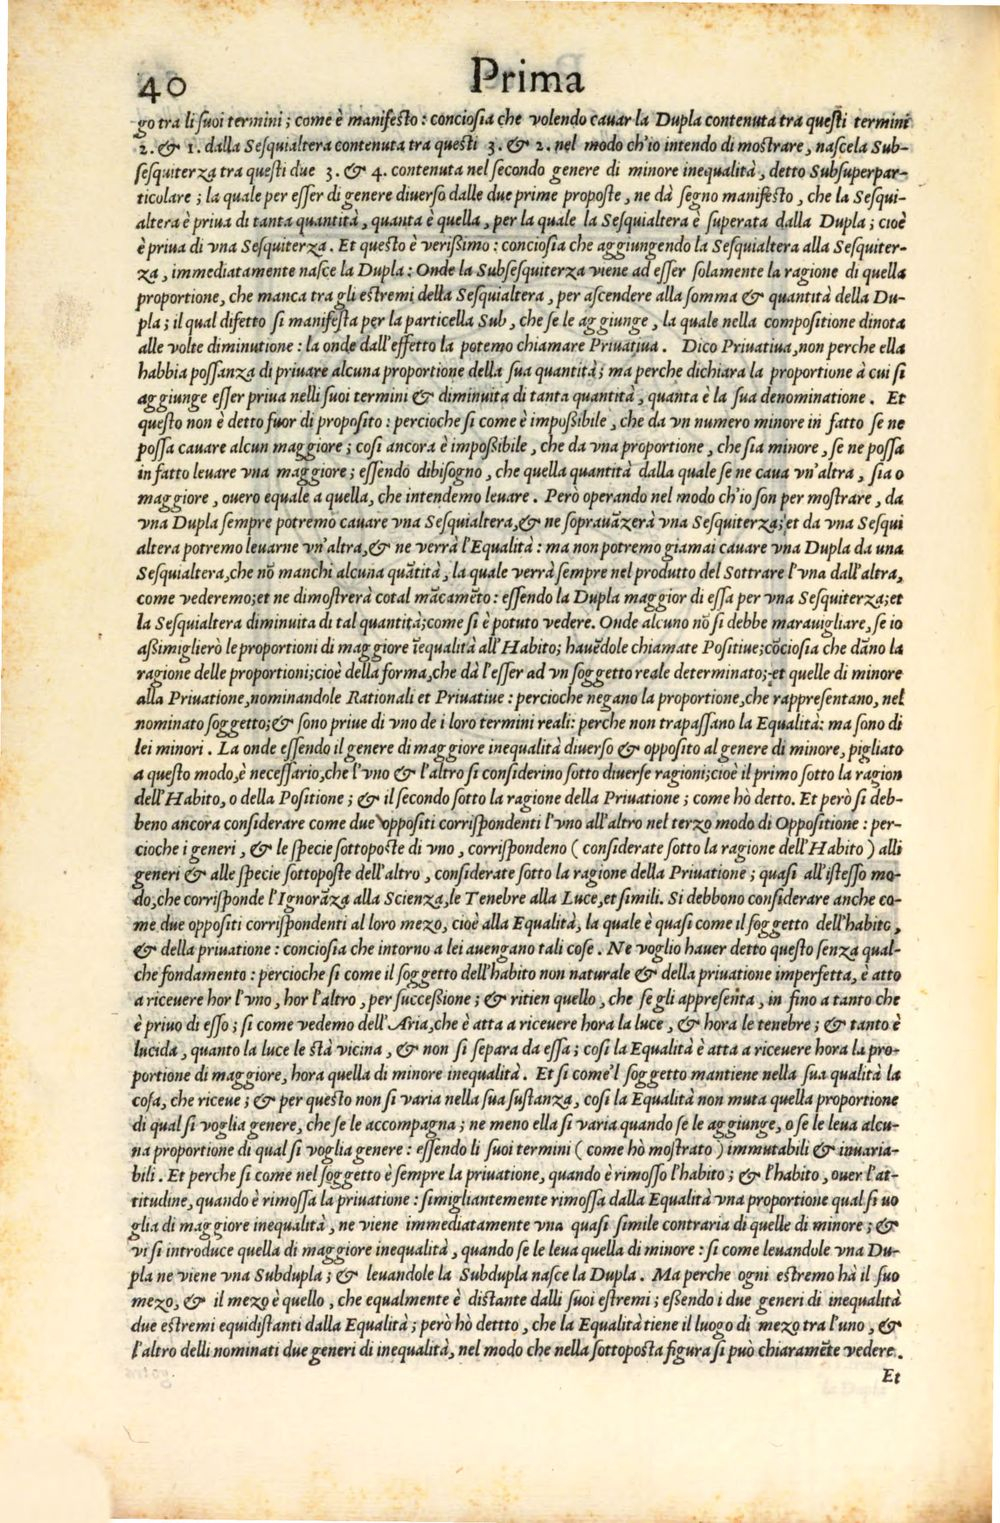 40
Prima
go tra li suoi termini; come è manifesto: conciosia che volendo cauar la Dupla contenuta tra questi termini
2. & 1. dalla Sesquialtera contenuta tra questi 3. & 2. nel modo ch'io intendo di mostrare, nasce la Sub-
sesquiterza tra questi due 3. & 4. contenuta nel secondo genere di minore inequalità, detto Subsuperpar-
ticulare; la quale per esser di genere diuerso dalle due prime proposte, ne dà segno manifesto, che la Sesqui-
altera è priua di tanta quantità, quanta è quella, per la quale la Sesquialtera è superata dalla Dupla; cioè
è priua di vna Sesquiterza. Et questo è verißimo: conciosia che aggiungendo la Sesquialtera alla Sesquiter-
za, immediatamente nasce la Dupla: Onde la Subsesquiterza viene ad esser solamente la ragione di quella
proportione, che manca tra gli estremi della Sesquialtera, per ascendere alla somma & quantità della Du-
pla; il qual difetto si manifesta per la particella Sub, che se le aggiunge, la quale nella compositione dinota
alle volte diminutione: la onde dall'effetto la potemo chiamare Priuatiua. Dico Priuatiua, non perche ella
habbia possanza di priuare alcuna proportione della sua quantità; ma perche dichiara la proportione à cui si
aggiunge esser priua nelli suoi termini & diminuita di tanta quantità, quanta è la sua denominatione. Et
questo non è detto fuor di proposito: percioche si come è impoßibile, che da vn numero minore in fatto se ne
possa cauare alcun maggiore; cosi ancora è impoßibile, che da vna proportione, che sia minore, se ne possa
in fatto leuare vna maggiore; essendo dibisogno, che quella quantità dalla quale se ne caua vn'altra, sia o
maggiore, ouero equale a quella, che intendemo leuare. Però operando nel modo ch'io son per mostrare, da
vna Dupla sempre potremo cauare vna Sesquialtera, & ne soprauãzerà vna Sesquiterza; et da vna Sesqui
altera potremo leuarne vn'altra, & ne verrà l'Equalità: ma non potremo giamai cauare vna Dupla da una
Sesquialtera, che nõ manchi alcuna quãtità, la quale verrà sempre nel produtto del Sottrare l'vna dall'altra,
come vederemo; et ne dimostrerà cotal mãcamẽto: essendo la Dupla maggior di essa per vna Sesquiterza; et
la Sesquialtera diminuita di tal quantità; come si è potuto vedere. Onde alcuno nõ si debbe marauigliare, se io
aßimiglierò le proportioni di maggiore ĩequalità all'Habito; hauẽdole chiamate Positiue; cõciosia che dãno la
ragione delle proportioni; cioè della forma, che dà l'esser ad vn soggetto reale determinato; et quelle di minore
alla Priuatione, nominandole Rationali et Priuatiue: percioche negano la proportione, che rappresentano, nel
nominato soggetto; & sono priue di vno de i loro termini reali: perche non trapassano la Equalità: ma sono di
lei minori. La onde essendo il genere di maggiore inequalità diuerso & opposito al genere di minore, pigliato
a questo modo, è necessario, che l'vno & l'altro si considerino sotto diuerse ragioni; cioè il primo sotto la ragion
dell'Habito, o della Positione; & il secondo sotto la ragione della Priuatione; come hò detto. Et però si deb-
beno ancora considerare come due oppositi corrispondenti l'vno all'altro nel terzo modo di Oppositione: per-
cioche i generi, & le specie sottoposte di vno, corrispondeno (considerate sotto la ragione dell'Habito) alli
generi & alle specie sottoposte dell'altro, considerate sotto la ragione della Priuatione; quasi all'istesso mo-
do, che corrisponde l'Ignorãza alla Scienza, le Tenebre alla Luce, et simili. Si debbono considerare anche co-
me due oppositi corrispondenti al loro mezo, cioè alla Equalità, la quale è quasi come il soggetto dell'habito,
& della priuatione: conciosia che intorno a lei auengano tali cose. Ne voglio hauer detto questo senza qual-
che fondamento: percioche si come il soggetto dell'habito non naturale & della priuatione imperfetta, è atto
a riceuere hor l'vno, hor l'altro, per succeßione; & ritien quello, che se gli appresenta, in fino a tanto che
è priuo di esso; si come vedemo dell'Aria, che è atta a riceuere hora la luce, & hora le tenebre; & tanto è
lucida, quanto la luce le stà vicina, & non si separa da essa; cosi la Equalità è atta a riceuere hora la pro-
portione di maggiore, hora quella di minore inequalità. Et si come'l soggetto mantiene nella sua qualità la
cosa, che riceue; & per questo non si varia nella sua sustanza, cosi la Equalità non muta quella proportione
di qual si voglia genere, che se le accompagna; ne meno ella si varia quando se le aggiunge, o se le leua alcu-
na proportione di qual si voglia genere: essendo li suoi termini (come hò mostrato) immutabili & inuaria-
bili. Et perche si come nel soggetto è sempre la priuatione, quando è rimosso l'habito; & l'habito, ouer l'at-
titudine, quando è rimossa la priuatione: simigliantemente rimossa dalla Equalità vna proportione qual si uo
glia di maggiore inequalità, ne viene immediatamente vna quasi simile contraria di quelle di minore; &
vi si introduce quella di maggiore inequalità, quando se le leua quella di minore: si come leuandole vna Du-
pla ne viene vna Subdupla; & leuandole la Subdupla nasce la Dupla. Ma perche ogni estremo hà il suo
mezo, & il mezo è quello, che equalmente è distante dalli suoi estremi; eßendo i due generi di inequalità
due estremi equidistanti dalla Equalità; però hò dettto, che la Equalità tiene il luogo di mezo tra l'uno, &
l'altro delli nominati due generi di inequalità, nel modo che nella sottoposta figura si può chiaramẽte vedere.
Et